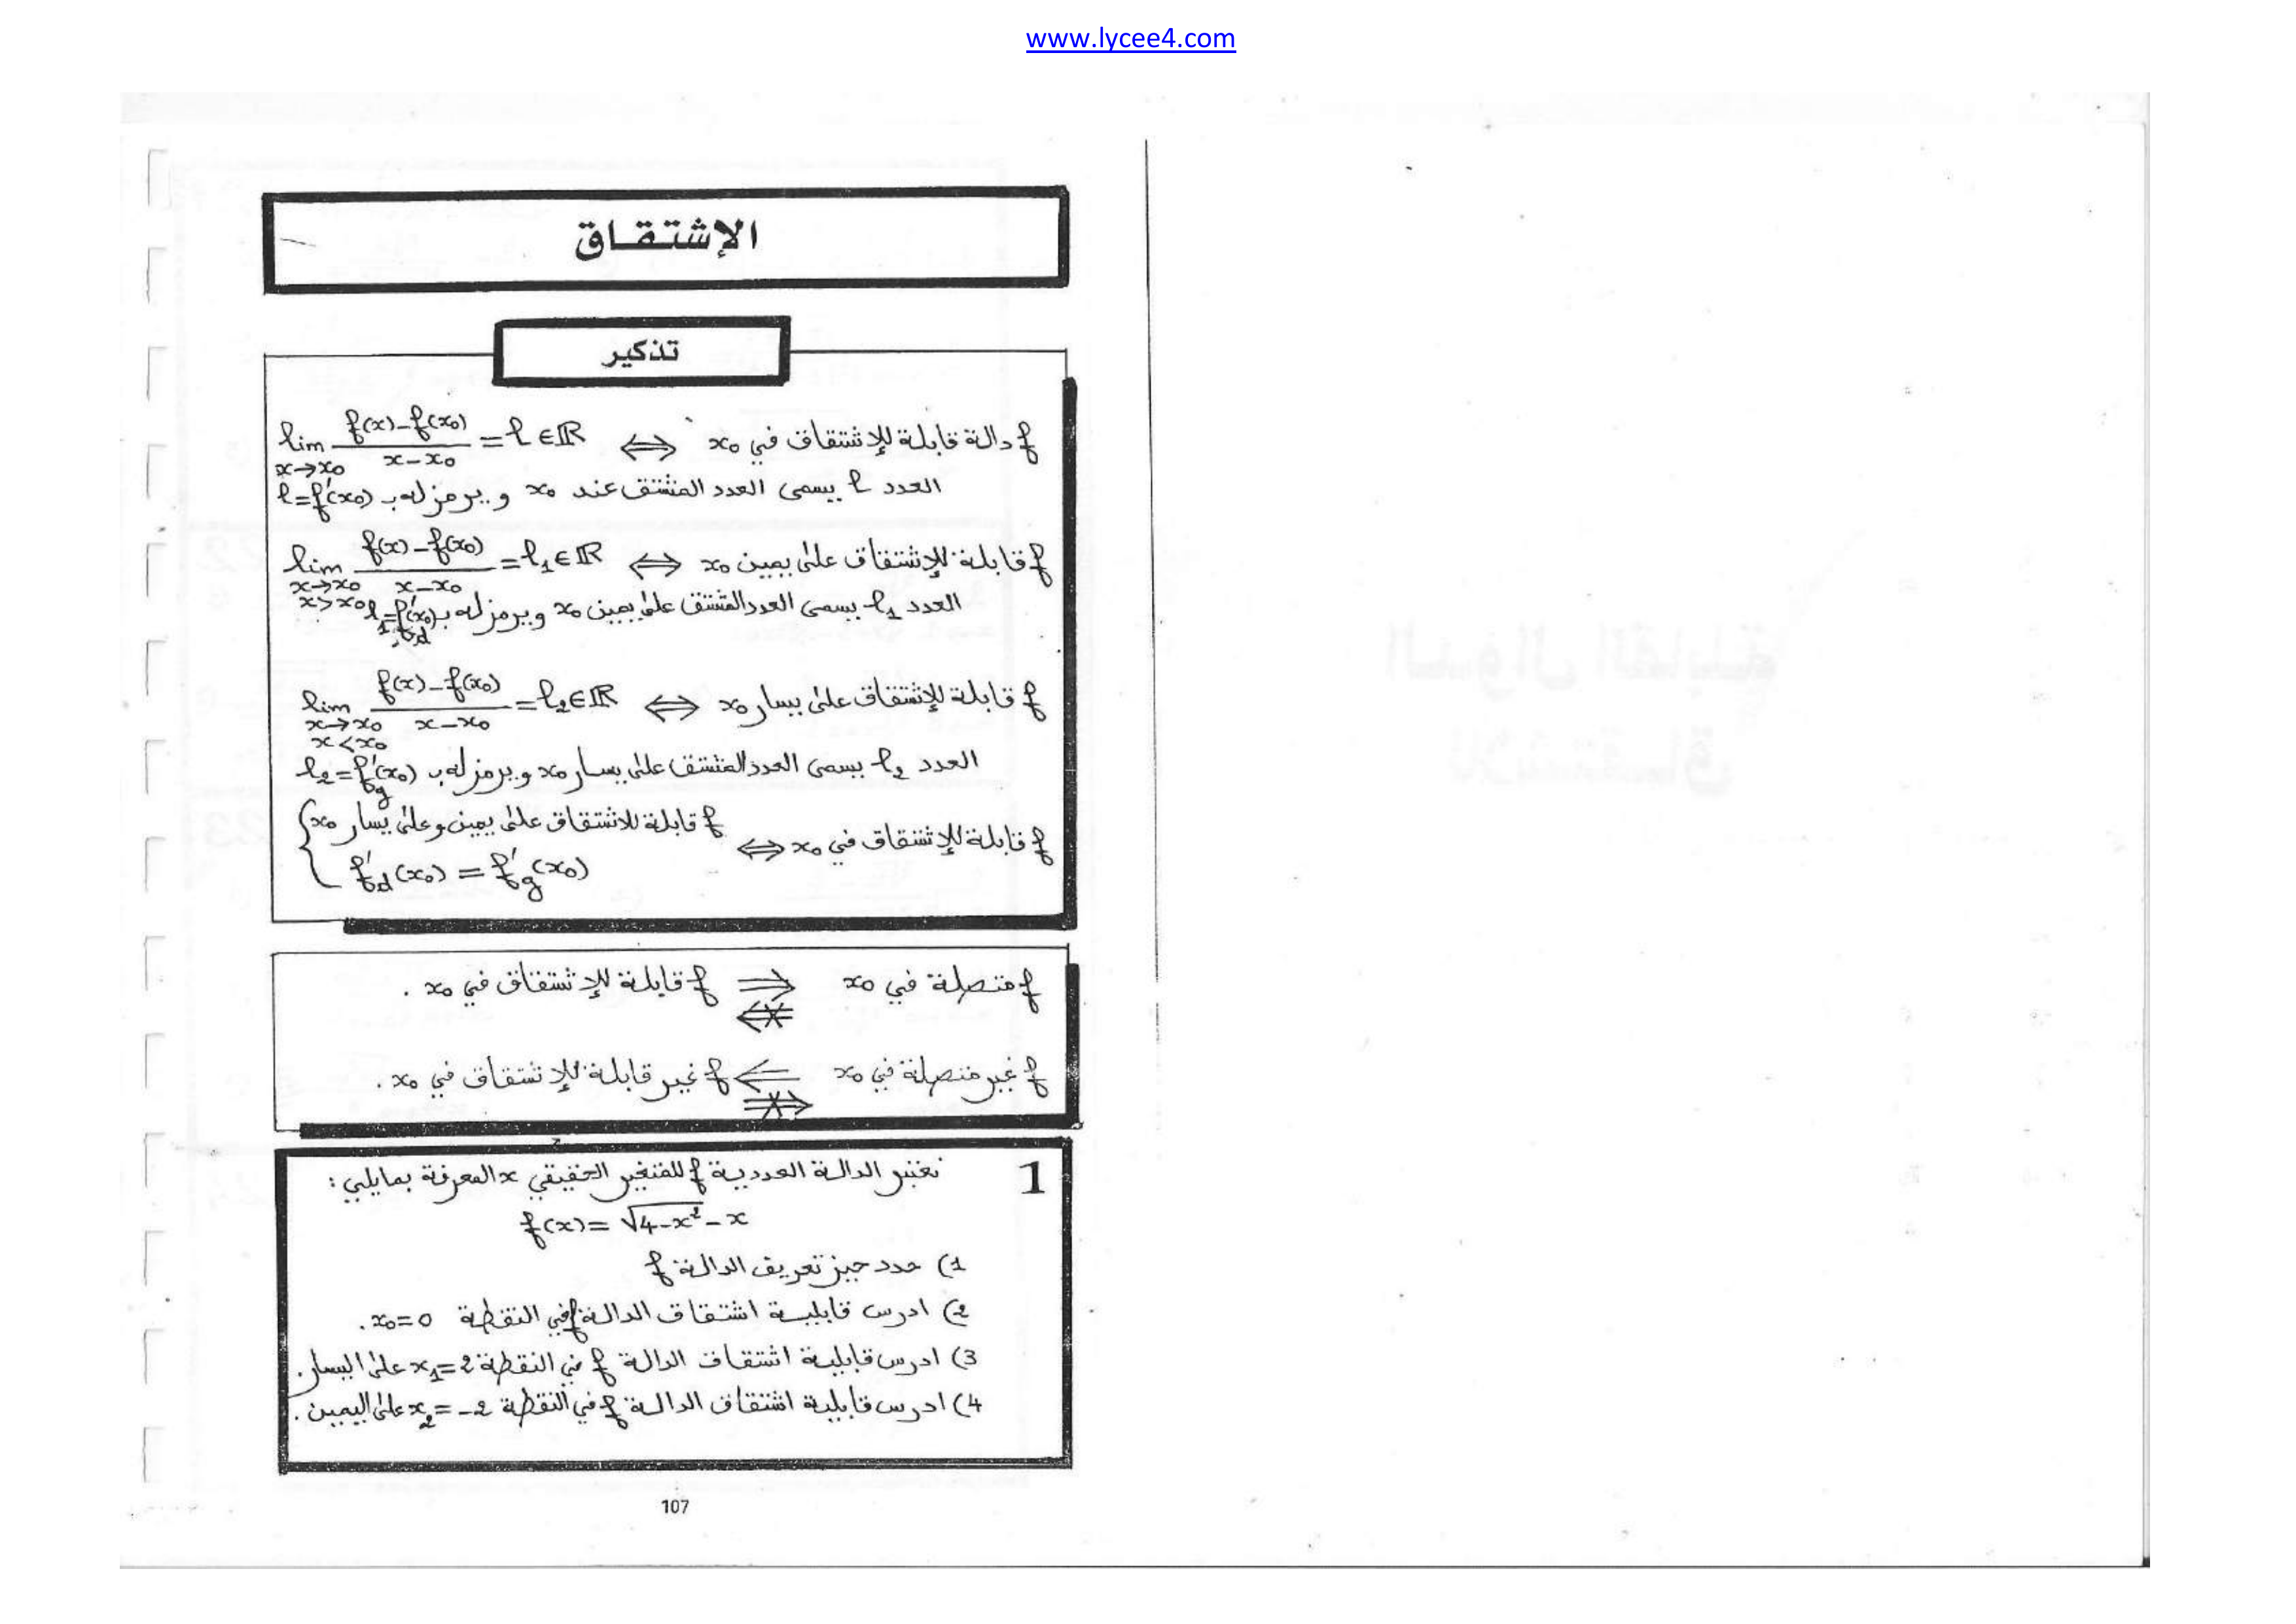 www.lycee4.com
الإشتقاق
تذكير
f دالة قابلة للإشتقاق في x₀ ⟺ lim_{x→x₀} (f(x)-f(x₀))/(x-x₀) = ℓ ∈ ℝ
العدد ℓ يسمى العدد المشتق عند x₀ و يرمز له ب ℓ=f'(x₀)
f قابلة للإشتقاق على يمين x₀ ⟺ lim_{x→x₀, x>x₀} (f(x)-f(x₀))/(x-x₀) = ℓ₁ ∈ ℝ
العدد ℓ₁ يسمى العدد المشتق على يمين x₀ ويرمز له ب ℓ₁=f'd(x₀)
f قابلة للإشتقاق على يسار x₀ ⟺ lim_{x→x₀, x<x₀} (f(x)-f(x₀))/(x-x₀) = ℓ₂ ∈ ℝ
العدد ℓ₂ يسمى العدد المشتق على يسار x₀ و يرمز له ب ℓ₂=f'g(x₀)
f قابلة للإشتقاق في x₀ ⟺ { f قابلة للاشتقاق على يمين وعلى يسار x₀
f'd(x₀) = f'g(x₀)
f متصلة في x₀ ⟹ f قابلة للإشتقاق في x₀ .
f غير متصلة في x₀ ⟸ f غير قابلة للإشتقاق في x₀ .
1 نعتبر الدالة العددية f للمتغير الحقيقي x المعرفة بمايلي :
f(x) = √(4-x²) - x
1) حدد حيز تعريف الدالة f
2) ادرس قابلية اشتقاق الدالة f في النقطة x₀=0 .
3) ادرس قابلية اشتقاق الدالة f في النقطة x₁=2 على اليسار .
4) ادرس قابلية اشتقاق الدالة f في النقطة x₂=-2 على اليمين .
107